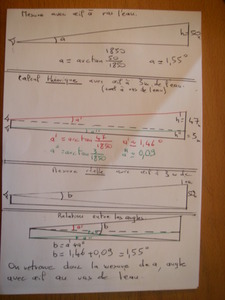 Mesure avec œil à ras l'eau.
h=50
a
1850
a = arctan 50/1850 a = 1,55°
Calcul théorique avec œil à 3m de l'eau.
(œil à ras de l'eau)
a'
h'=47m
a''
h''=3m
a' = arctan 47/1850 a' = 1,46°
a'' = arctan 3/1850 a'' = 0,09
Mesure réelle avec œil à 3m de
b
Relation entre les angles
a'
b
a''
b = a' + a''
b = 1,46 + 0,09 = 1,55°
On retrouve donc la mesure de a, angle
avec œil au ras de l'eau